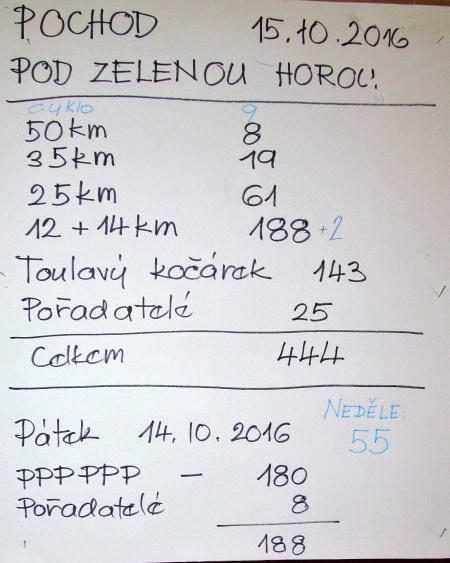 POCHOD 15.10.2016
POD ZELENOU HOROU!
cyklo 9
50km 8
35km 19
25km 61
12 + 14km 188 +2
Toulavý kočárek 143
Pořadatelé 25
Celkem 444
NEDĚLE:
55
Pátek 14.10.2016
PPPPPP - 180
Pořadatelé 8
188